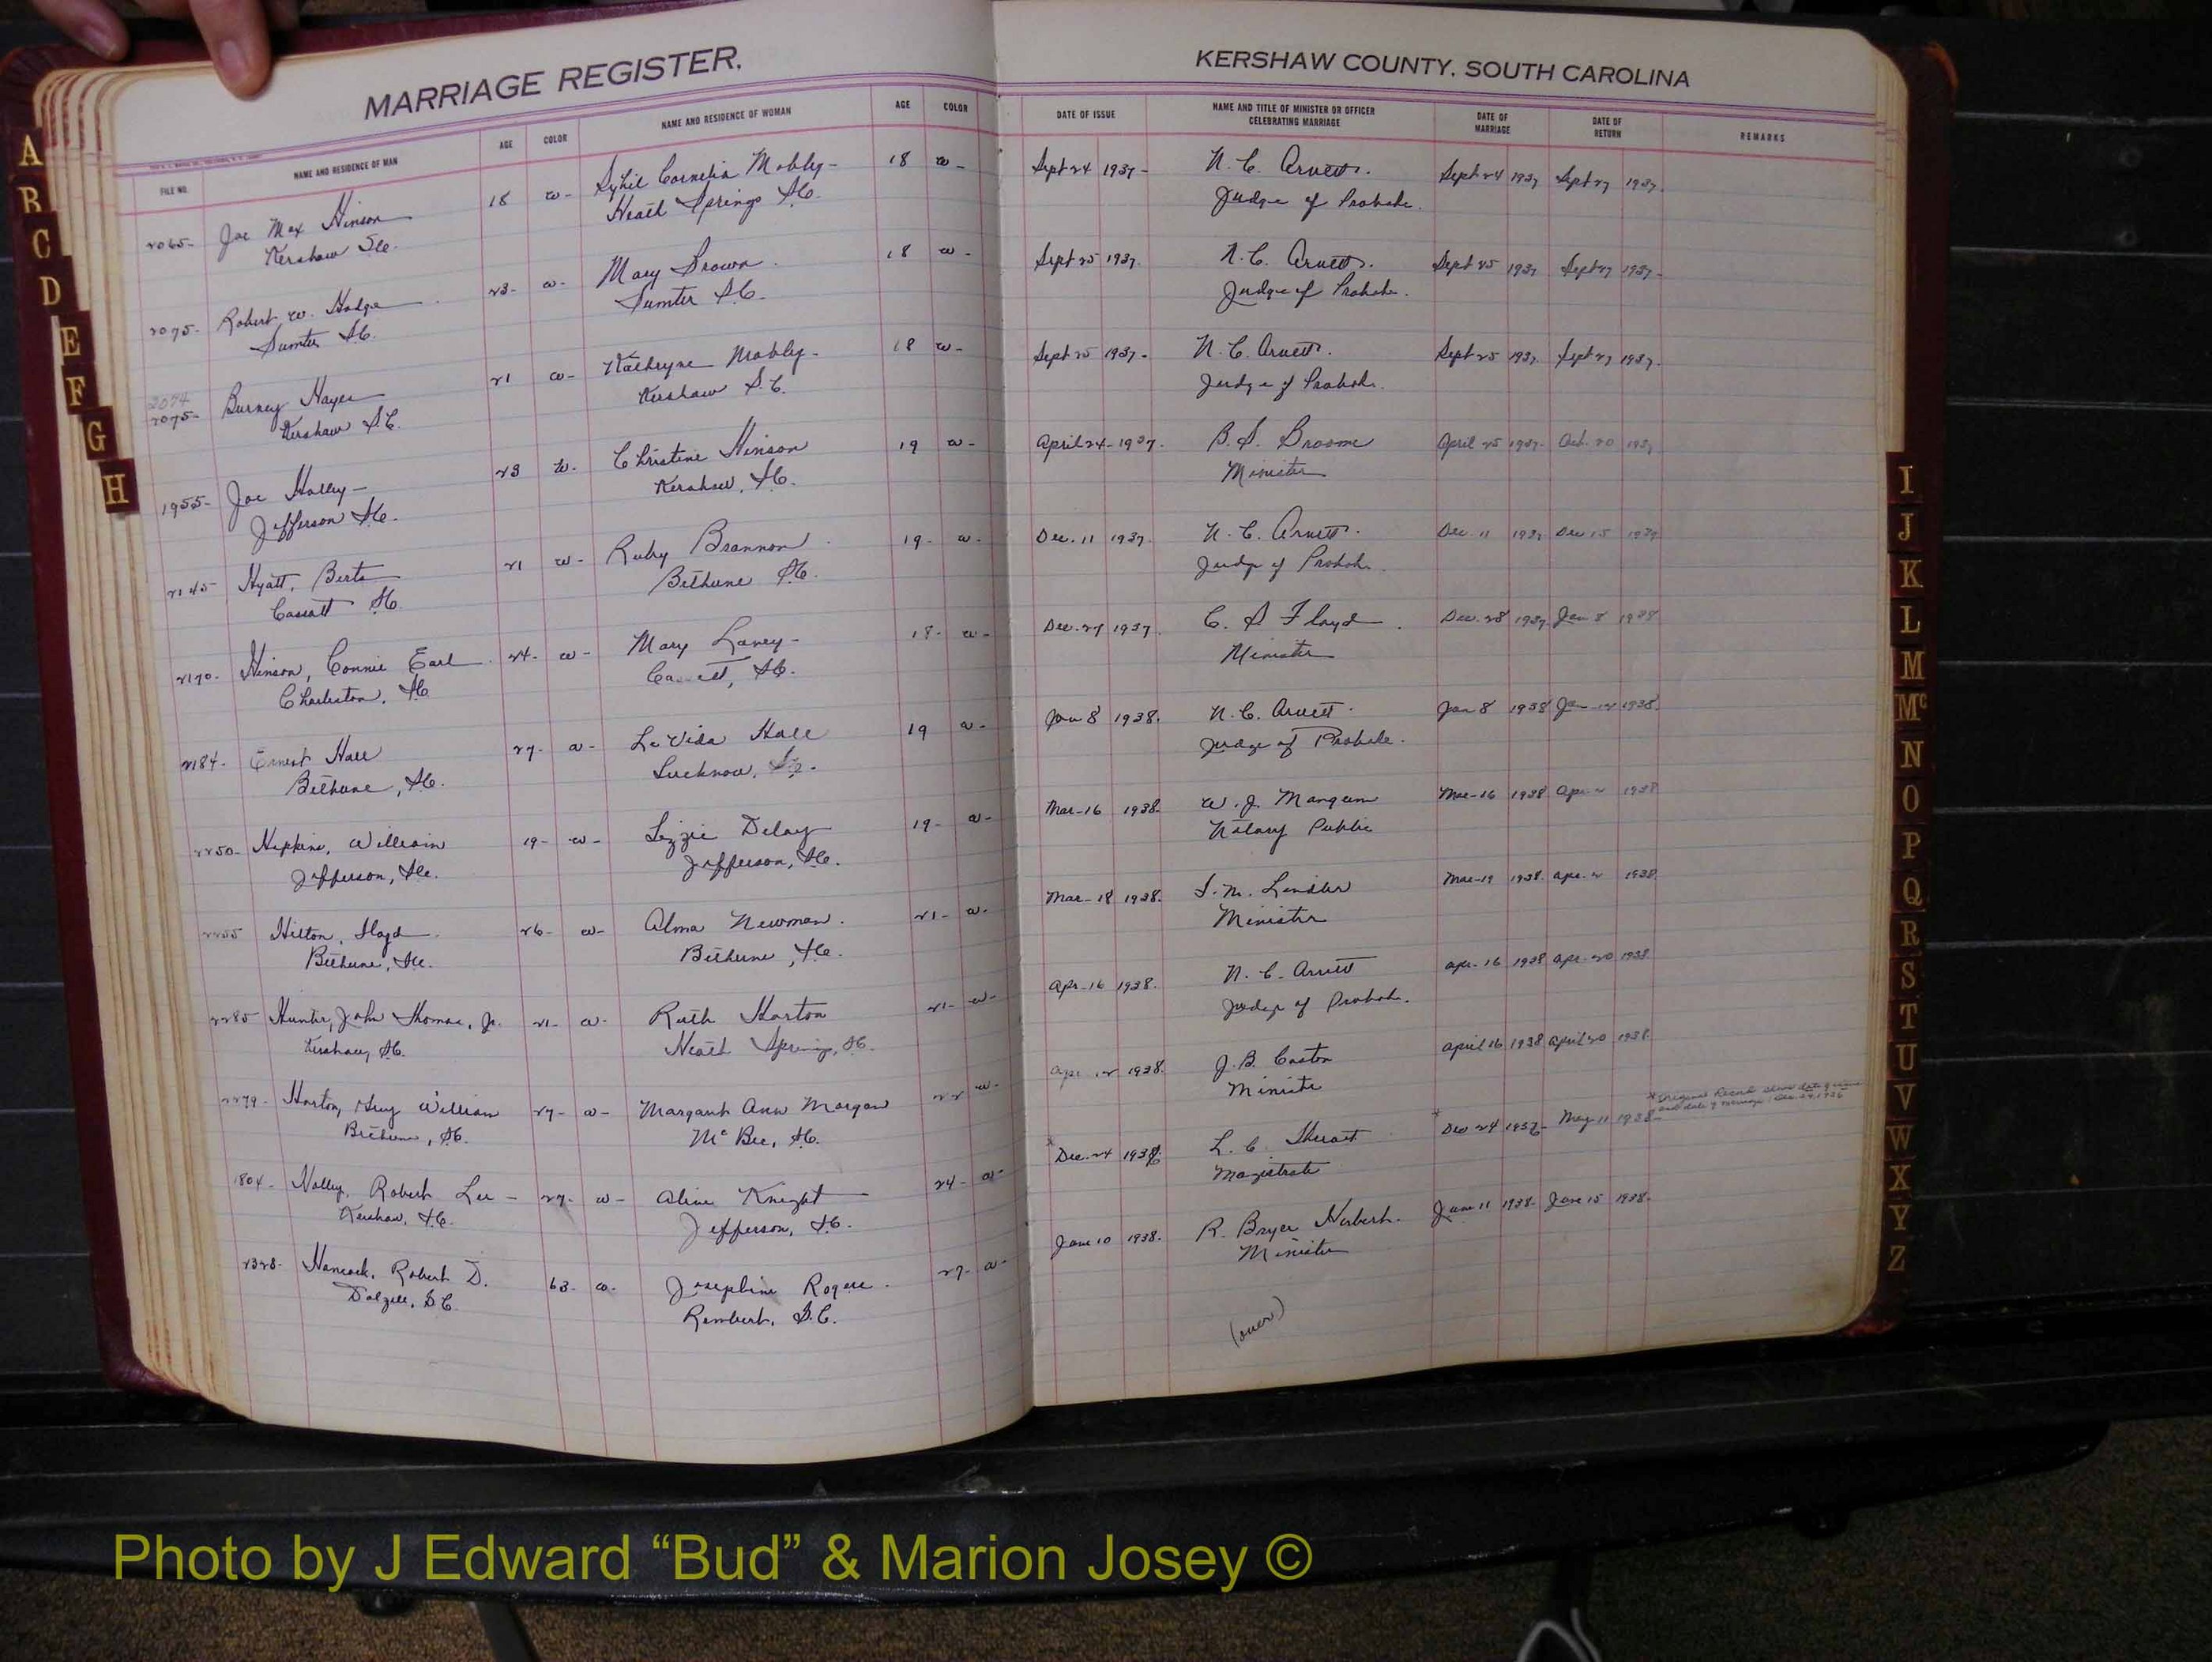 MARRIAGE REGISTER.
KERSHAW COUNTY, SOUTH CAROLINA
FILE NO. NAME AND RESIDENCE OF MAN AGE COLOR NAME AND RESIDENCE OF WOMAN AGE COLOR DATE OF ISSUE NAME AND TITLE OF MINISTER OR OFFICER CELEBRATING MARRIAGE DATE OF MARRIAGE DATE OF RETURN REMARKS
2065- Joe Max Hinson 18 w- Sybil Cornelia Mobley- 18 w- Sept 24 1937- N. C. Arnett. Sept 24 1937 Sept 27 1937.
Kershaw S.C. Heath Springs S.C. Judge of Probate.
2075- Robert W. Hodge 23- w- Mary Brown 18 w- Sept 25 1937. N. C. Arnett. Sept 25 1937 Sept 27 1937-
Sumter S.C. Sumter S.C. Judge of Probate.
2074
2075- Burney Hayes 21 w- Katheryne Mobley- 18 w- Sept 25 1937- N. C. Arnett. Sept 25 1937. Sept 27 1937.
Kershaw S.C. Kershaw S.C. Judge of Probate.
1955- Joe Holley- 23 w- Christine Hinson 19 w- April 24-1937. B. S. Broome April 25 1937- Oct. 20 1937
Jefferson S.C. Kershaw, S.C. Minister
2145- Hyatt, Berta 21 w- Ruby Brannon 19- w- Dec. 11 1937. N. C. Arnett. Dec. 11 1937 Dec 15 1937
Cassatt S.C. Bethune S.C. Judge of Probate.
2170- Hinson, Connie Earl 24- w- Mary Laney- 18- w- Dec. 27 1937. C. S Floyd Dec. 28 1937 Jan 8 1938.
Charleston, S.C. S.C. Minister
2184- Ernest Hall 27- w- LeVida Hall 19 w- Jan 8 1938. N. C. Arnett. Jan 8 1938 Jan 12 1938.
Bethune, S.C. Lucknow, Judge of Probate.
2250- Hipkins, William 19- w- Lizzie Delay 19- w- Mar-16 1938. W. J. Mangum Mar-16 1938 Apr-2 1938
Jefferson, S.C. Jefferson, S.C. Notary Public
2255 Hilton, Lloyd 26- w- Alma Newman. 21- w- Mar-18 1938. Minister Mar-19 1938. Apr-2 1938.
Bethune, S.C. Bethune, S.C.
2285 Hunter, John Thomas, Jr. 21- w- Ruth Horton 21- w- Apr-16 1938. N. C. Arnett Apr-16 1938 Apr-20 1938.
Kershaw, S.C. Heath Springs, S.C. Judge of Probate.
2279- Horton, William 27- w- Margaret Ann Morgan 22 w- Apr 12 1938. J. B. Caston April 16 1938 April 20 1938.
Bethune, S.C. McBee, S.C. Minister
1804- Holley, Robert Lee- 27- w- Aline Knight 24- w- *Dec-24 1936 L. C. *Dec 24 1936- May 11 1938- *Original Record shows date of issue
Kershaw, S.C. Jefferson, S.C. Magistrate and date of marriage: Dec. 24, 1936
2328- Hancock, Robert D. 63- w- Josephine Rogers. 27- w- June 10 1938. R. Bryce Herbert. June 11 1938- June 15 1938-
Dalzell, S.C. Rembert, S.C. Minister
(over)
A
B
C
D
E
F
G
H
I
J
K
L
M
Mc
N
O
P
Q
R
S
T
U
V
W
X
Y
Z
Photo by J Edward “Bud” & Marion Josey ©